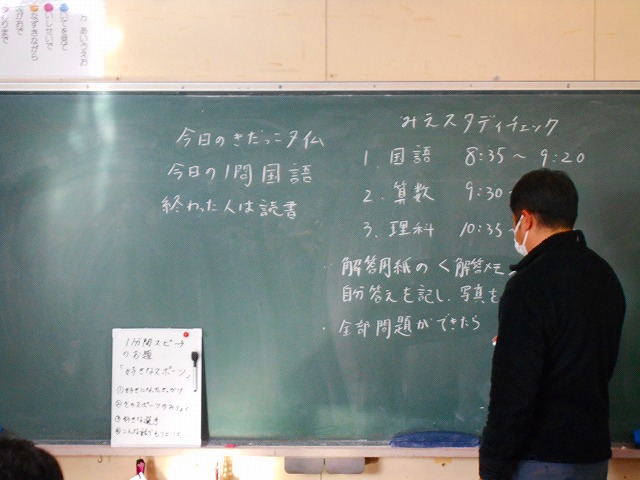 あいうえお
いてを見て
いしせいで
なずきながら
えがおで
わりまで
今日のきだっこタイム
今日の1問国語
終わった人は読書
みえスタディチェック
1. 国語 8:35～9:20
2. 算数 9:30
3. 理科 10:35
・解答用紙の<解答メモ
自分答えを記し、写真を
・全部問題ができたら
1分間スピーチ
のお題
「好きなスポーツ」
①好きになったきっかけ
②そのスポーツのみりょく
③好きな選手
④こんな話でもつ